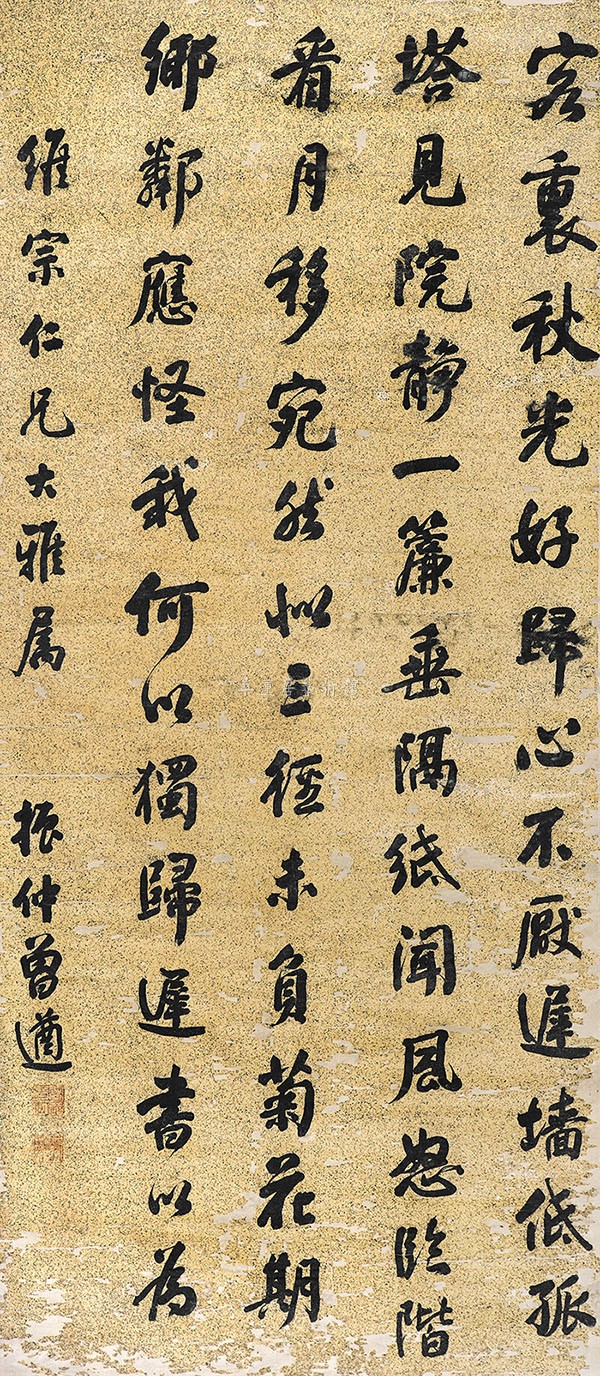 客裏秋光好歸心不厭遲墻低孤
塔見院靜一簾垂隔紙聞風怒臨階
看月移宛然似三徑未負菊花期
鄉鄰應怪我何以獨歸遲書以為
維宗仁兄大雅属
振仲曾遒